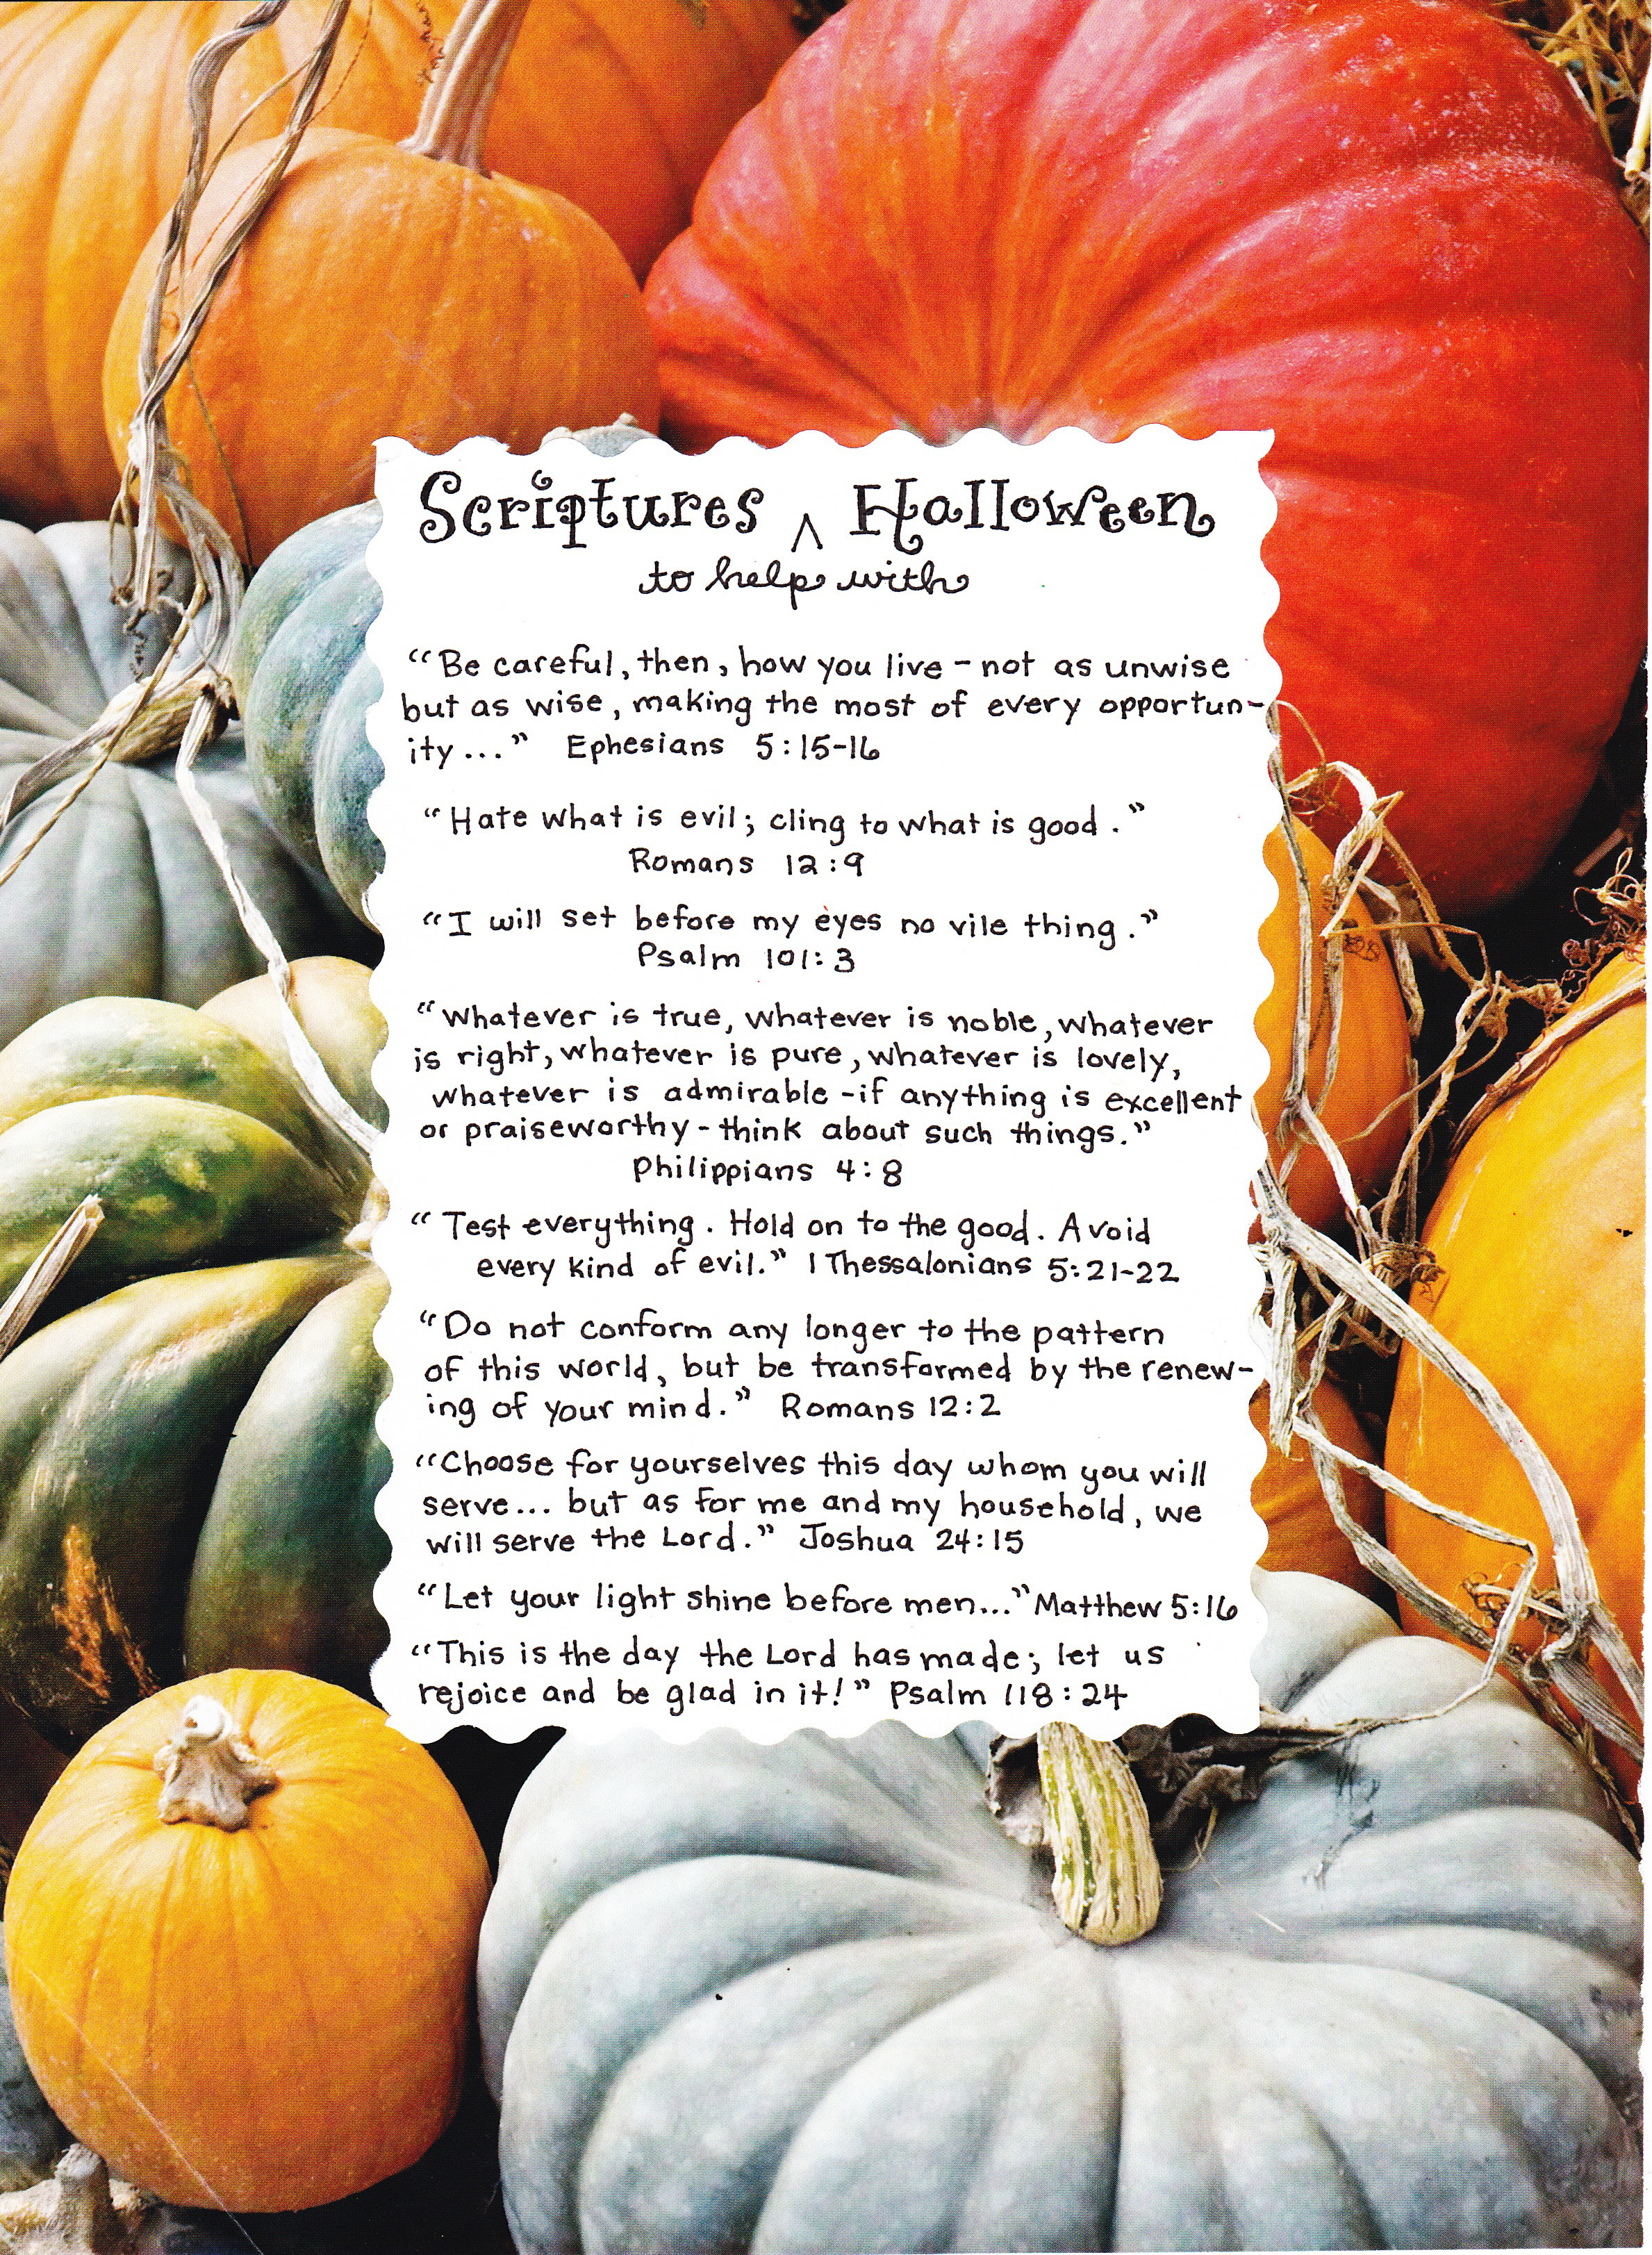 Scriptures ^ Halloween
to help with
“Be careful, then, how you live - not as unwise
but as wise, making the most of every opportun-
ity...” Ephesians 5:15-16
“Hate what is evil; cling to what is good.”
Romans 12:9
“I will set before my eyes no vile thing.”
Psalm 101:3
“Whatever is true, whatever is noble, whatever
is right, whatever is pure, whatever is lovely,
whatever is admirable - if anything is excellent
or praiseworthy - think about such things.”
Philippians 4:8
“Test everything. Hold on to the good. Avoid
every kind of evil.” 1 Thessalonians 5:21-22
“Do not conform any longer to the pattern
of this world, but be transformed by the renew-
ing of your mind.” Romans 12:2
“Choose for yourselves this day whom you will
serve... but as for me and my household, we
will serve the Lord.” Joshua 24:15
“Let your light shine before men...” Matthew 5:16
“This is the day the Lord has made; let us
rejoice and be glad in it!” Psalm 118:24